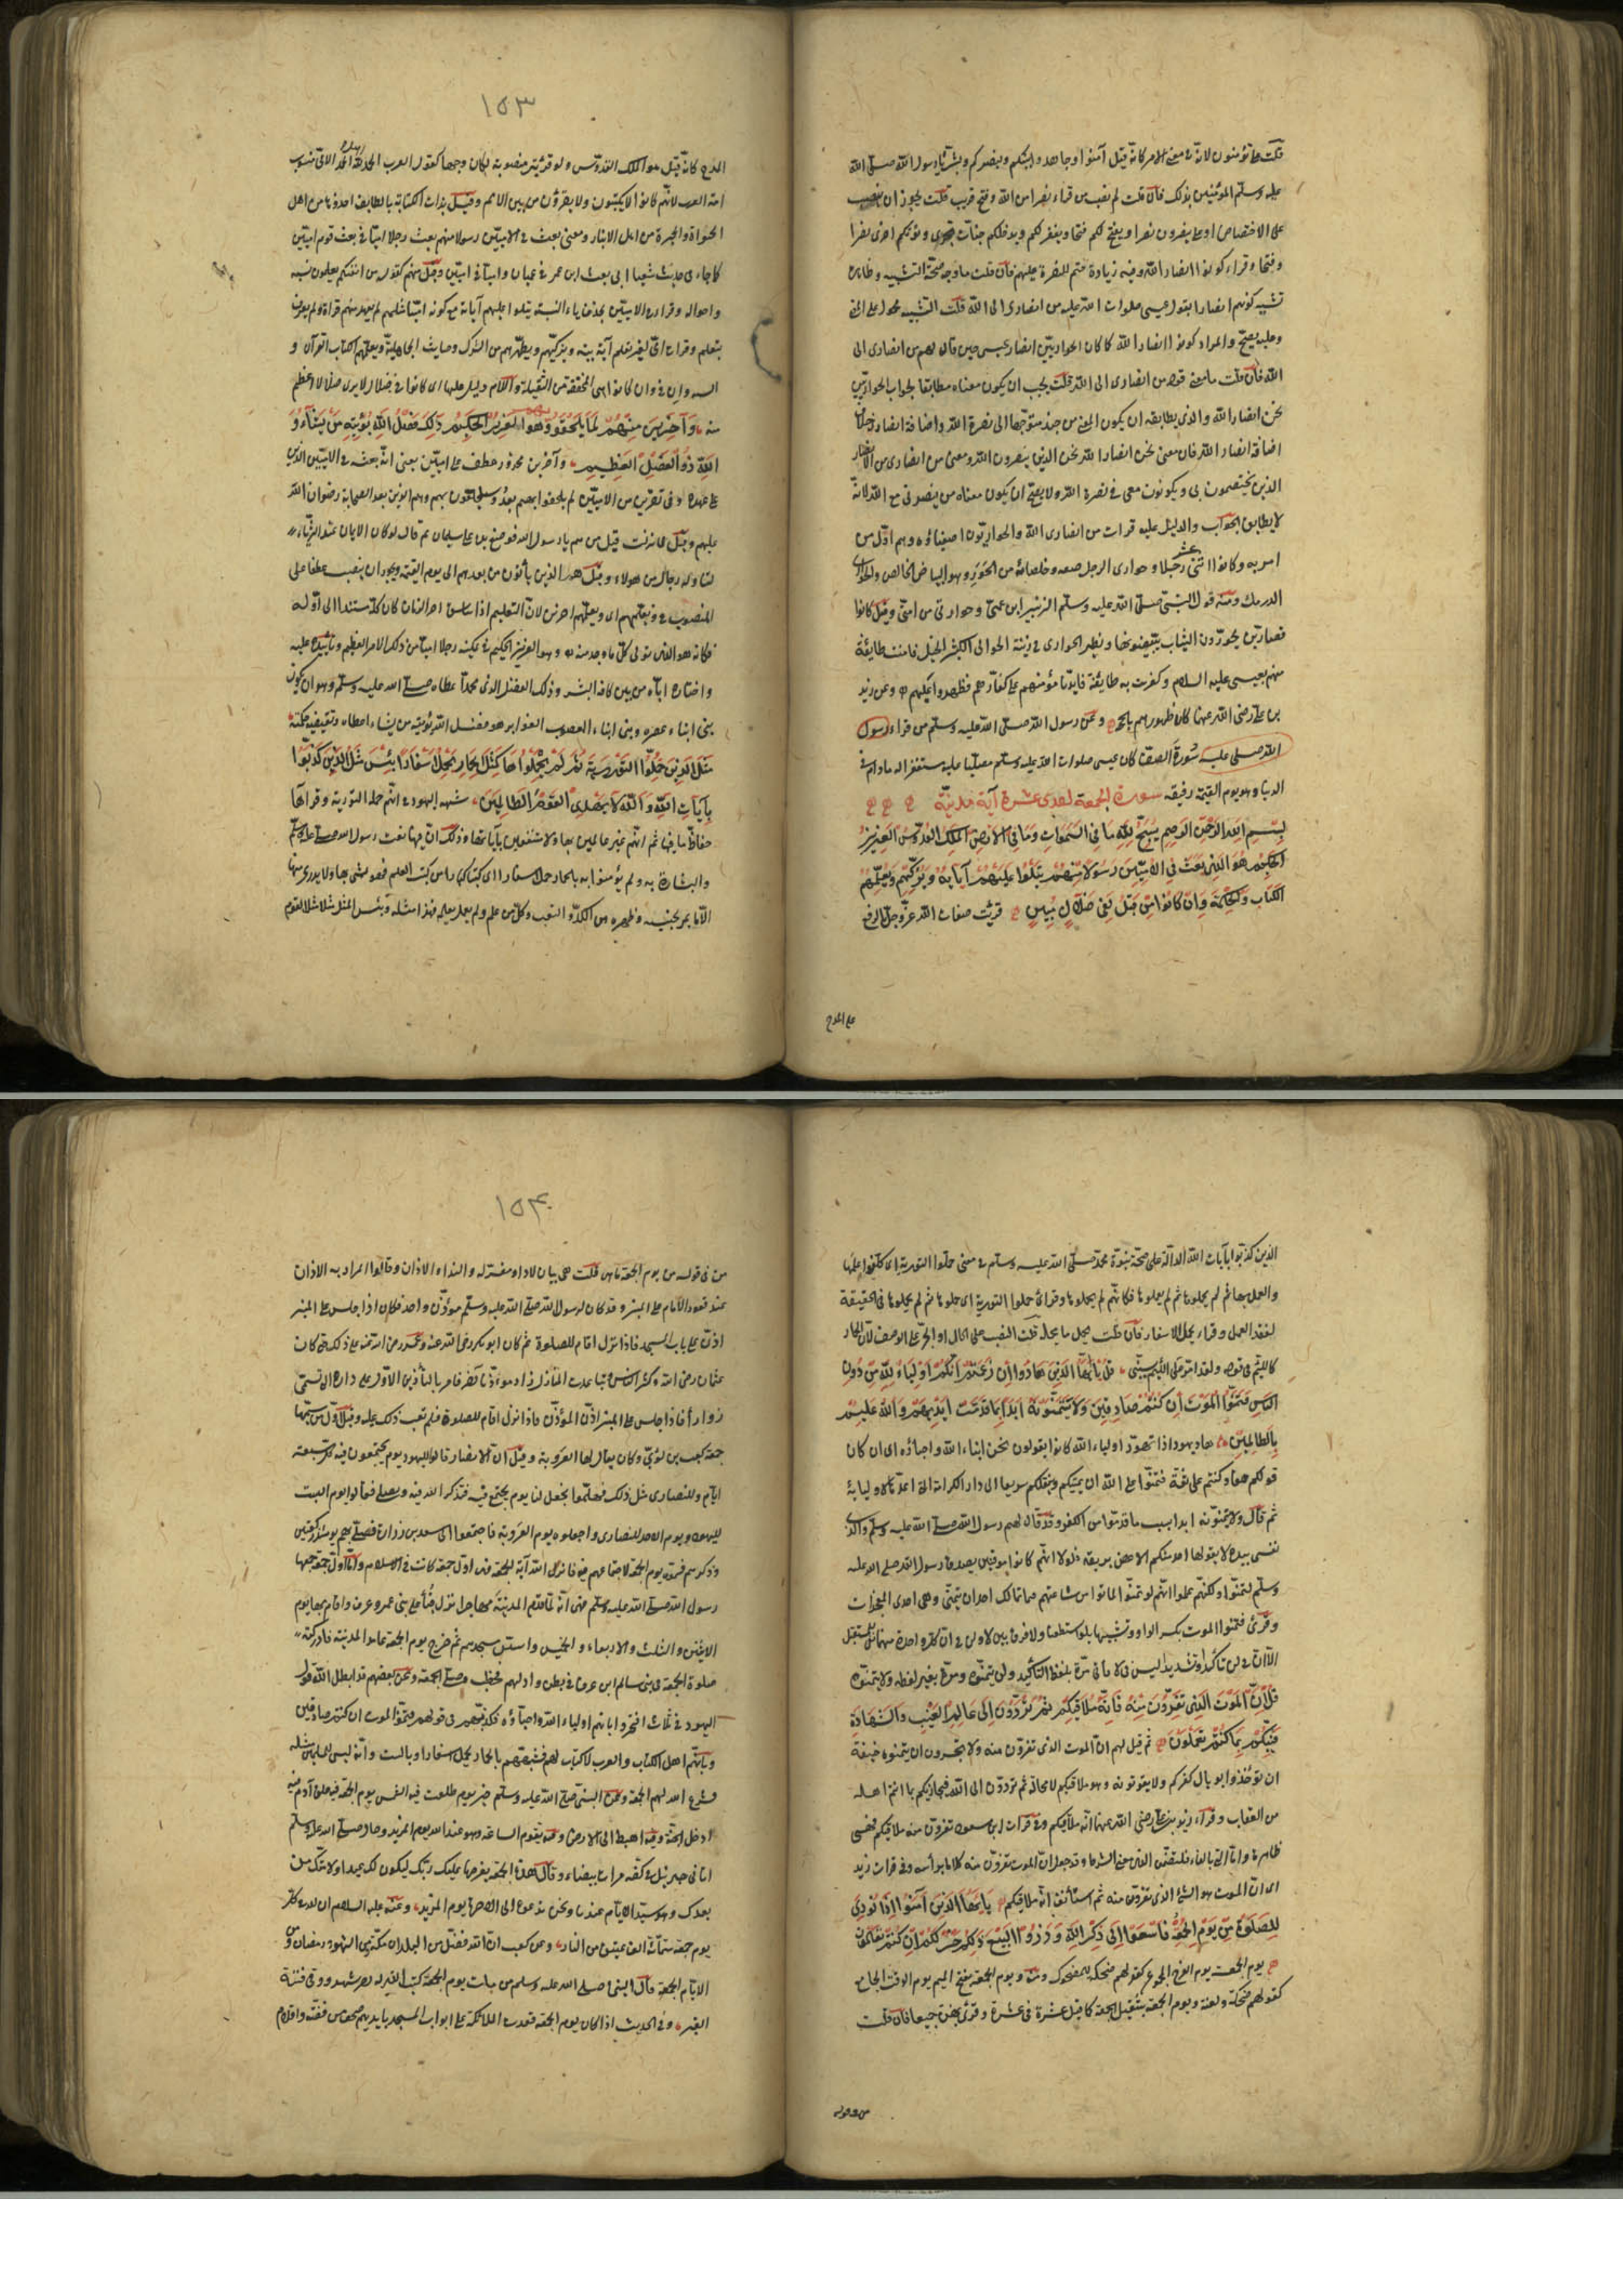 قلت على تؤمنون لانه في معنى الامر كانه قيل آمنوا وجاهدوا يثبكم وينصركم وبشر يا رسول الله صلى الله
عليه وسلم المؤمنين بذلك فان قلت لم نصب من قراء نصرا من الله وفتح قريب قلت يجوز ان ينصب
على الاختصاص او على ينصرون نصرا ويفتح لكم فتحا ويغفر لكم ويدخلكم جنات ويؤتكم اخرى نصرا
وفتحا وقراء كونوا انصار الله وفيه زيادة حتم للنصرة عليهم فان قلت ما وجه صحة التشبيه وظاهره
تشبيه كونهم انصارا بقول عيسى صلوات الله عليه من انصاري الى الله قلت التشبيه محمول على المعنى
وعليه يصح والمراد كونوا انصار الله كما كان الحواريين انصار عيسى حين قال لهم من انصاري الى
الله فان قلت ما معنى قوله من انصاري الى الله قلت يجب ان يكون معناه مطابقا لجواب الحواريين
نحن انصار الله والذي يطابقه ان يكون المعنى من جندي متوجها الى نصرة الله واضافة انصاري خلاف
اضافة انصار الله فان معنى نحن انصار الله نحن الذين ينصرون الله ومعنى من انصاري من الانصار
الذين يختصمون بي ويكونون معي في نصرة الله ولا يصح ان يكون معناه من ينصرني مع الله لانه
لا يطابق الجواب والدليل عليه قرات من انصاري الله والحواريون اصفياؤه وهم اول من
امن به وكانوا اثنى عشر رجلا وحواري الرجل صفيه وخلصانه من الحور وهو البياض الخالص والحواري
الدرمك ومنه قول النبي صلى الله عليه وسلم الزبير ابن عمتي وحواري من امتي وقيل كانوا
قصارين يحورون الثياب يبيضونها ونظير الحواري في زنته الحوالي الكثير الحيل فامنت طايفة
منهم بعيسى عليه السلام وكفرت به طايفة فايدنا مؤمنيهم على كفارهم فظهروا عليهم وعن زيد
بن على رضى الله عنهما كان ظهورهم بالحجة وعن رسول الله صلى الله عليه وسلم من قراء رسول
الله صلى عليه سورة الصف كان عيسى صلوات الله عليه وسلم مصليا عليه مستغفرا له ما دام في
الدنيا وهو يوم القيمة رفيقه سورة الجمعة احدى عشرة آية مدنية
بسم الله الرحمن الرحيم يسبح لله ما في السموات وما في الارض الملك القدوس العزيز
الحكيم هو الذي بعث في الاميين رسولا منهم يتلوا عليهم آياته ويزكيهم ويعلمهم
الكتاب والحكمة وان كانوا من قبل لفي ضلال مبين قرئت صفات الله عز وجل بالرفع
على المدح
١٥٣
المدح كانه قيل هو الملك القدوس ولو قرئت منصوبة لكان وجها كقول العرب الحمد لله اهل الحمد الامي منسوب
امة العرب لانهم كانوا لا يكتبون ولا يقرؤن من بين الامم وقيل بدات الكتابة بالطايف اخذوها من اهل
الحيرة والحيرة من اهل الانبار ومعنى بعث في الاميين رسولا منهم بعث رجلا اميا في بعث قوم اميين
كما جاء في حديث شعيا اني ابعث اعمى في عميان واميا في اميين وقيل منهم كقوله من انفسكم يعلمون نسبه
واحواله وقرات الاميين بحذف ياء النسبة يتلوا عليهم آياته مع كونه اميا مثلهم لم يعهد منهم قراة ولم يعرف
بتعلم وقراءة امي لغير تعلم آية بينه ويزكيهم ويطهرهم من الشرك وخبايث الجاهلية ويعلمهم الكتاب القرآن و
السنة وان في وان كانوا هي المخففة من الثقيلة واللام دليل عليها اي كانوا في ضلال لا يرى ضلالا اعظم
منه وآخرين منهم لما يلحقوا بهم وهو العزيز الحكيم ذلك فضل الله يؤتيه من يشاء و
الله ذو الفضل العظيم وآخرين مجرور عطف على الاميين يعني انه بعثه في الاميين الذين
على عهده وفي آخرين من الاميين لم يلحقوا بهم بعد وسيلحقون بهم وهم الذين بعد الصحابة رضوان الله
عليهم وقيل لما نزلت قيل من هم يا رسول الله فوضع يده على سلمان ثم قال لو كان الايمان عند الثرياء
لتناوله رجال من هولاء وقيل هم الذين يأتون من بعدهم الى يوم القيمة ويجوز ان ينصب عطفا على
المنصوب في ويعلمهم اي ويعلمهم آخرين لان التعليم اذا تناسق الى آخر الزمان كان كله مستندا الى اوله
فكانه هو الذي تولى كل ما وجد منه وهو العزيز الحكيم في تمكينه رجلا اميا من ذلك الامر العظيم وتأييده عليه
واختياره اياه من بين كافة البشر وذلك الفضل الذي اعطاه محمدا صلى الله عليه وسلم وهو ان يكون
نبي ابناء عصره ونبي ابناء العصور الغوابر هو فضل الله يؤتيه من يشاء اعطاه وتقتضيه حكمته
مثل الذين حملوا التورية ثم لم يحملوها كمثل الحمار يحمل اسفارا بئس مثل القوم الذين كذبوا
بآيات الله والله لا يهدي القوم الظالمين شبه اليهود في انهم حملة التورية وقراؤها
حفاظ ما فيها ثم انهم غير عاملين بها ولا منتفعين بآياتها وذلك ان فيها نعت رسول الله صلى الله عليه وسلم
والبشارة به ولم يؤمنوا به بالحمار حمل اسفارا اي كتبا كبارا من كتب العلم فهو يمشي بها ولا يدري منها
الا ما يمر بجنبيه وظهره من الكد والتعب وكل من علم ولم يعمل بعلمه فهذا مثله وبئس المثل مثلا مثل القوم
الذين كذبوا بآيات الله الدالة على صحة نبوة محمد صلى الله عليه وسلم في معنى حملوا التورية اي كلفوا علمها
والعمل بها ثم لم يحملوها ثم لم يعملوا بها فكانهم لم يحملوها وقرئ حملوا التورية اي حملوها ثم لم يحملوها في الحقيقة
لفقد العمل وقراء يحمل الاسفار فان قلت يحمل ما محله قلت النصب على الحال او الجر على الوصف لان الحمار
كاللئيم في قوله ولقد امر على اللئيم يسبني قل يا ايها الذين هادوا ان زعمتم انكم اولياء لله من دون
الناس فتمنوا الموت ان كنتم صادقين ولا يتمنونه ابدا بما قدمت ايديهم والله عليم
بالظالمين هاد يهود اذا تهود اولياء الله كانوا يقولون نحن ابناء الله واحباؤه اي ان كان
قولكم حقا وكنتم على ثقة فتمنوا على الله ان يميتكم وينقلكم سريعا الى دار الكرامة التي اعدها لاوليائه
ثم قال ولا يتمنونه ابدا بسبب ما قدموا من الكفر وقد قال لهم رسول الله صلى الله عليه وسلم والذي
نفسي بيده لا يقولها احد منكم الا غص بريقه فلولا انهم كانوا موقنين بصدق رسول الله صلى الله عليه
وسلم لتمنوا ولكنهم علموا انهم لو تمنوا لماتوا من ساعتهم فما تمالك احد ان يتمنى وهي احدى المعجزات
وقرئ فتمنوا الموت بكسر الواو وتشبيها بلو استطعنا ولا فرق بين لا ولن في ان كل واحدة منهما نفي للمستقبل
الا ان في لن تاكيدا وتشديدا ليس في لا فاتى مرة بلفظ التأكيد ولن يتمنوه ومرة بغير لفظه ولا يتمنونه
قل ان الموت الذي تفرون منه فانه ملاقيكم ثم تردون الى عالم الغيب والشهادة
فينبئكم بما كنتم تعملون ثم قيل لهم ان الموت الذي تفرون منه ولا تجسرون ان تتمنوه خيفة
ان تؤخذوا بوبال كفركم ولا يفوتونه وهو ملاقيكم لا محالة ثم تردون الى الله فيجازيكم بما انتم اهله
من العقاب وقراء زيد بن علي رضى الله عنهما انه ملاقيكم وفي قرات ابن مسعود تفرون منه ملاقيكم فهي
ظاهرة واما التي بالفاء فلتضمن الذي معنى الشرط وقد جعل ان الموت تفرون منه كلاما برأسه وفي قرات زيد
اي ان الموت هو الشئ الذي تفرون منه ثم استأنف انه ملاقيكم يا ايها الذين آمنوا اذا نودي
للصلوة من يوم الجمعة فاسعوا الى ذكر الله وذروا البيع ذلكم خير لكم ان كنتم تعلمون
يوم الجمعة يوم الفوج المجموع كقولهم ضحكة للمضحوك منه ويوم الجمعة بفتح الميم يوم الوقت الجامع
كقولهم ضحكة ولعنة ويوم الجمعة بتثقيل الجمعة كما قيل عشرة في عشرة وقرئ بهن جميعا فان قلت
من قوله
١٥٤
من في قوله من يوم الجمعة ما هي قلت هي بيان لاذا ومفسر له والنداء الاذان وقالوا المراد به الاذان
عند قعود الامام على المنبر وقد كان لرسول الله صلى الله عليه وسلم مؤذن واحد فكان اذا جلس على المنبر
اذن على باب المسجد فاذا نزل اقام للصلوة ثم كان ابو بكر رضى الله عنه وعمر رضى الله عنه على ذلك حتى كان
عثمان رضى الله وكثر الناس وتباعدت المنازل زاد موذنا آخر فامر بالتأذين الاول على داره التي تسمى
زوراء فاذا جلس على المنبر اذن المؤذن فاذا نزل اقام للصلوة فلم يعب ذلك عليه وقيل اول من سماها
جمعة كعب بن لؤي وكان يقال لها العروبة وقيل ان الانصار قالوا لليهود يوم يجتمعون فيه كل سبعة
ايام وللنصارى مثل ذلك فهلموا نجعل لنا يوم نجتمع فيه فنذكر الله فيه ونصلي فقالوا يوم السبت
لليهود ويوم الاحد للنصارى واجعلوه يوم العروبة فاجتمعوا الى سعد بن زرارة فصلى بهم يومئذ ركعتين
وذكرهم فسموه يوم الجمعة لاجتماعهم فيه فانزل الله آية الجمعة فهي اول جمعة كانت في الاسلام واما اول جمعة جمعها
رسول الله صلى الله عليه وسلم فهي انه لما قدم المدينة مهاجرا نزل قبا على بني عمرو عوف واقام بها يوم
الاثنين والثلث والاربعاء والخميس واسس مسجدهم ثم خرج يوم الجمعة عامدا المدينة فادركته
صلوة الجمعة في بني سالم ابن عوف في بطن واد لهم فخطب وصلى الجمعة وعن بعضهم قد ابطل الله قول
اليهود في ثلاث افتخروا بانهم اولياء الله واحباؤه فكذبهم في قولهم فتمنوا الموت ان كنتم صادقين
وبانهم اهل الكتاب والعرب لا كتاب لهم فشبههم بالحمار يحمل اسفارا وبالسبت وانه ليس للمسلمين مثله
فشرع الله لهم الجمعة وعن النبي صلى الله عليه وسلم خير يوم طلعت فيه الشمس يوم الجمعة فيه خلق آدم وفيه
ادخل الجنة وفيه اهبط الى الارض وفيه تقوم الساعة وهو عند الله يوم المزيد وعن صلى الله عليه وسلم
اتاني جبرئيل في كفه مرات بيضاء وقال هذه الجمعة يعرضها عليك ربك ليكون لك عيدا ولامتك من
بعدك وهو سيد الايام عندنا ونحن ندعوه الى الاخرة يوم المزيد وعنه عليه السلام ان لله في كل
يوم جمعة ستمائة الف عتيق من النار وعن كعب ان الله فضل من البلدان مكة ومن الشهور رمضان ومن
الايام الجمعة قال النبي صلى الله عليه وسلم من مات يوم الجمعة كتب الله له اجر شهيد ووقي فتنة
القبر وفي الحديث اذا كان يوم الجمعة قعدت الملائكة على ابواب المسجد بايديهم صحف من فضة واقلام